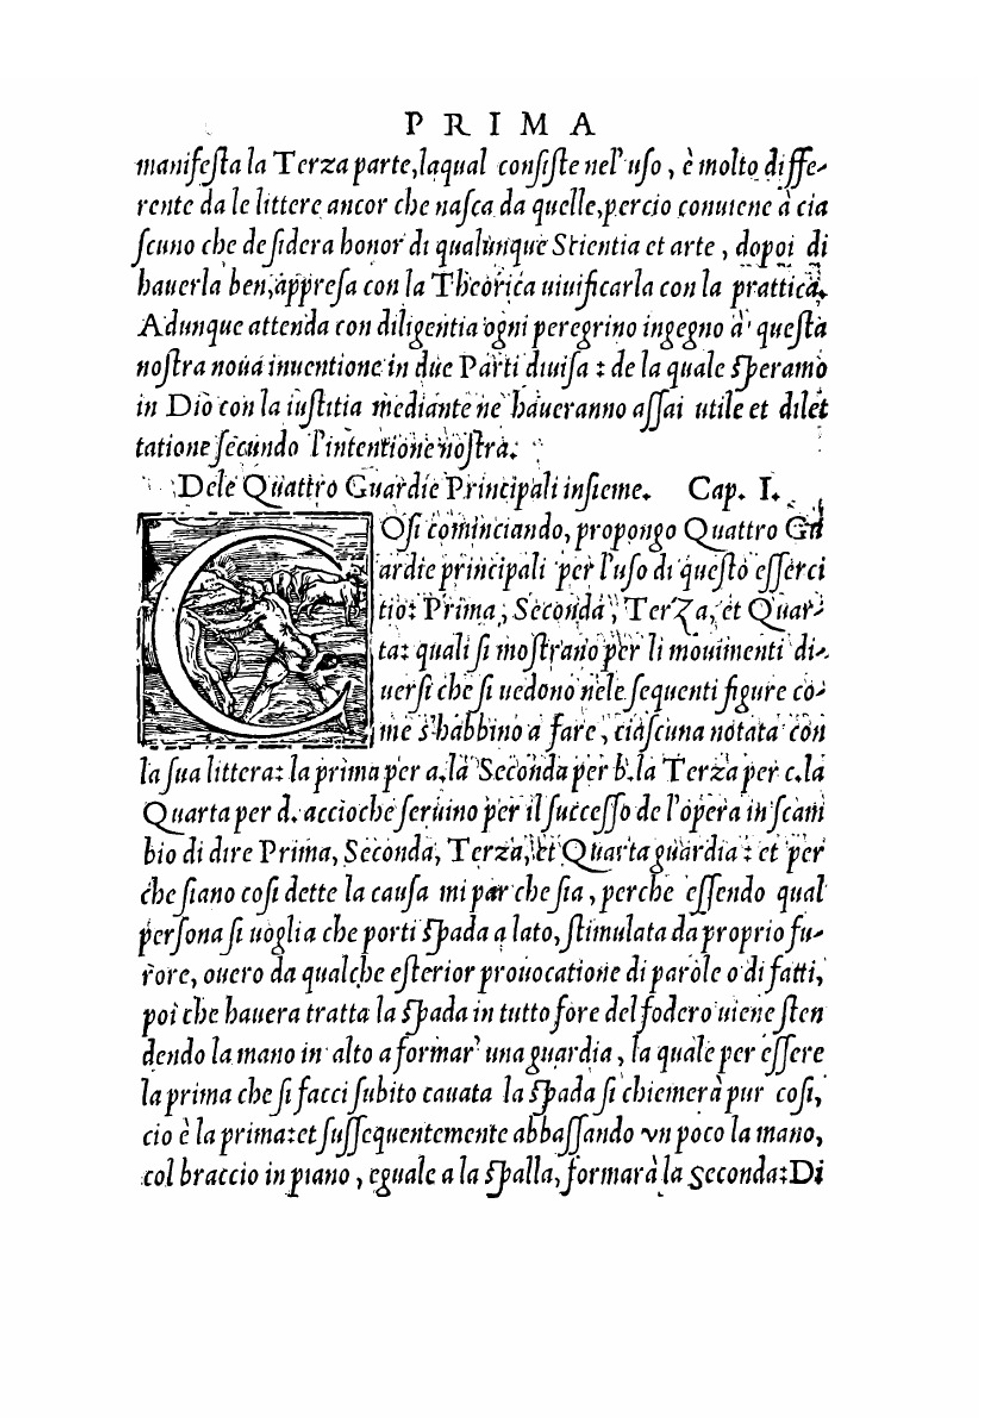 PRIMA
manifeſta la Terza parte, laqual conſiſte nel' uſo, è molto diffe-
rente da le littere ancor che naſca da quelle, percio conuiene à cia
ſcuno che deſidera honor di qualunque Scientia et arte, dopoi di
hauerla ben, appreſa con la Theorica uiuificarla con la prattica.
Adunque attenda con diligentia ogni peregrino ingegno à queſta
noſtra noua inuentione in due Parti diuiſa: de la quale ſperamo
in Dio con la iuſtitia mediante ne haueranno aſſai utile et dilet
tatione ſecundo l'intentione noſtra.
Dele Quattro Guardie Principali inſieme. Cap. I.
COſi cominciando, propongo Quattro Gu
ardie principali per l'uſo di queſto eſſerci
tio: Prima, Seconda, Terza, et Quar-
ta: quali ſi moſtrano per li mouimenti di-
uerſi che ſi uedono nele ſequenti figure co-
me s'habbino a fare, ciaſcuna notata con
la ſua littera: la prima per a. la Seconda per b. la Terza per c. la
Quarta per d. accioche ſeruino per il ſucceſſo de l'opera in ſcam
bio di dire Prima, Seconda, Terza, et Quarta guardia: et per
che ſiano coſi dette la cauſa mi par che ſia, perche eſſendo qual
perſona ſi uoglia che porti ſpada a lato, ſtimulata da proprio fu-
rore, ouero da qualche eſterior prouocatione di parole o di fatti,
poi che hauera tratta la ſpada in tutto fore del fodero uiene ſten
dendo la mano in alto a formar' una guardia, la quale per eſſere
la prima che ſi facci ſubito cauata la ſpada ſi chiemerà pur coſi,
cio è la prima: et ſuſſequentemente abbaſſando vn poco la mano,
col braccio in piano, eguale a la ſpalla, formarà la Seconda: Di